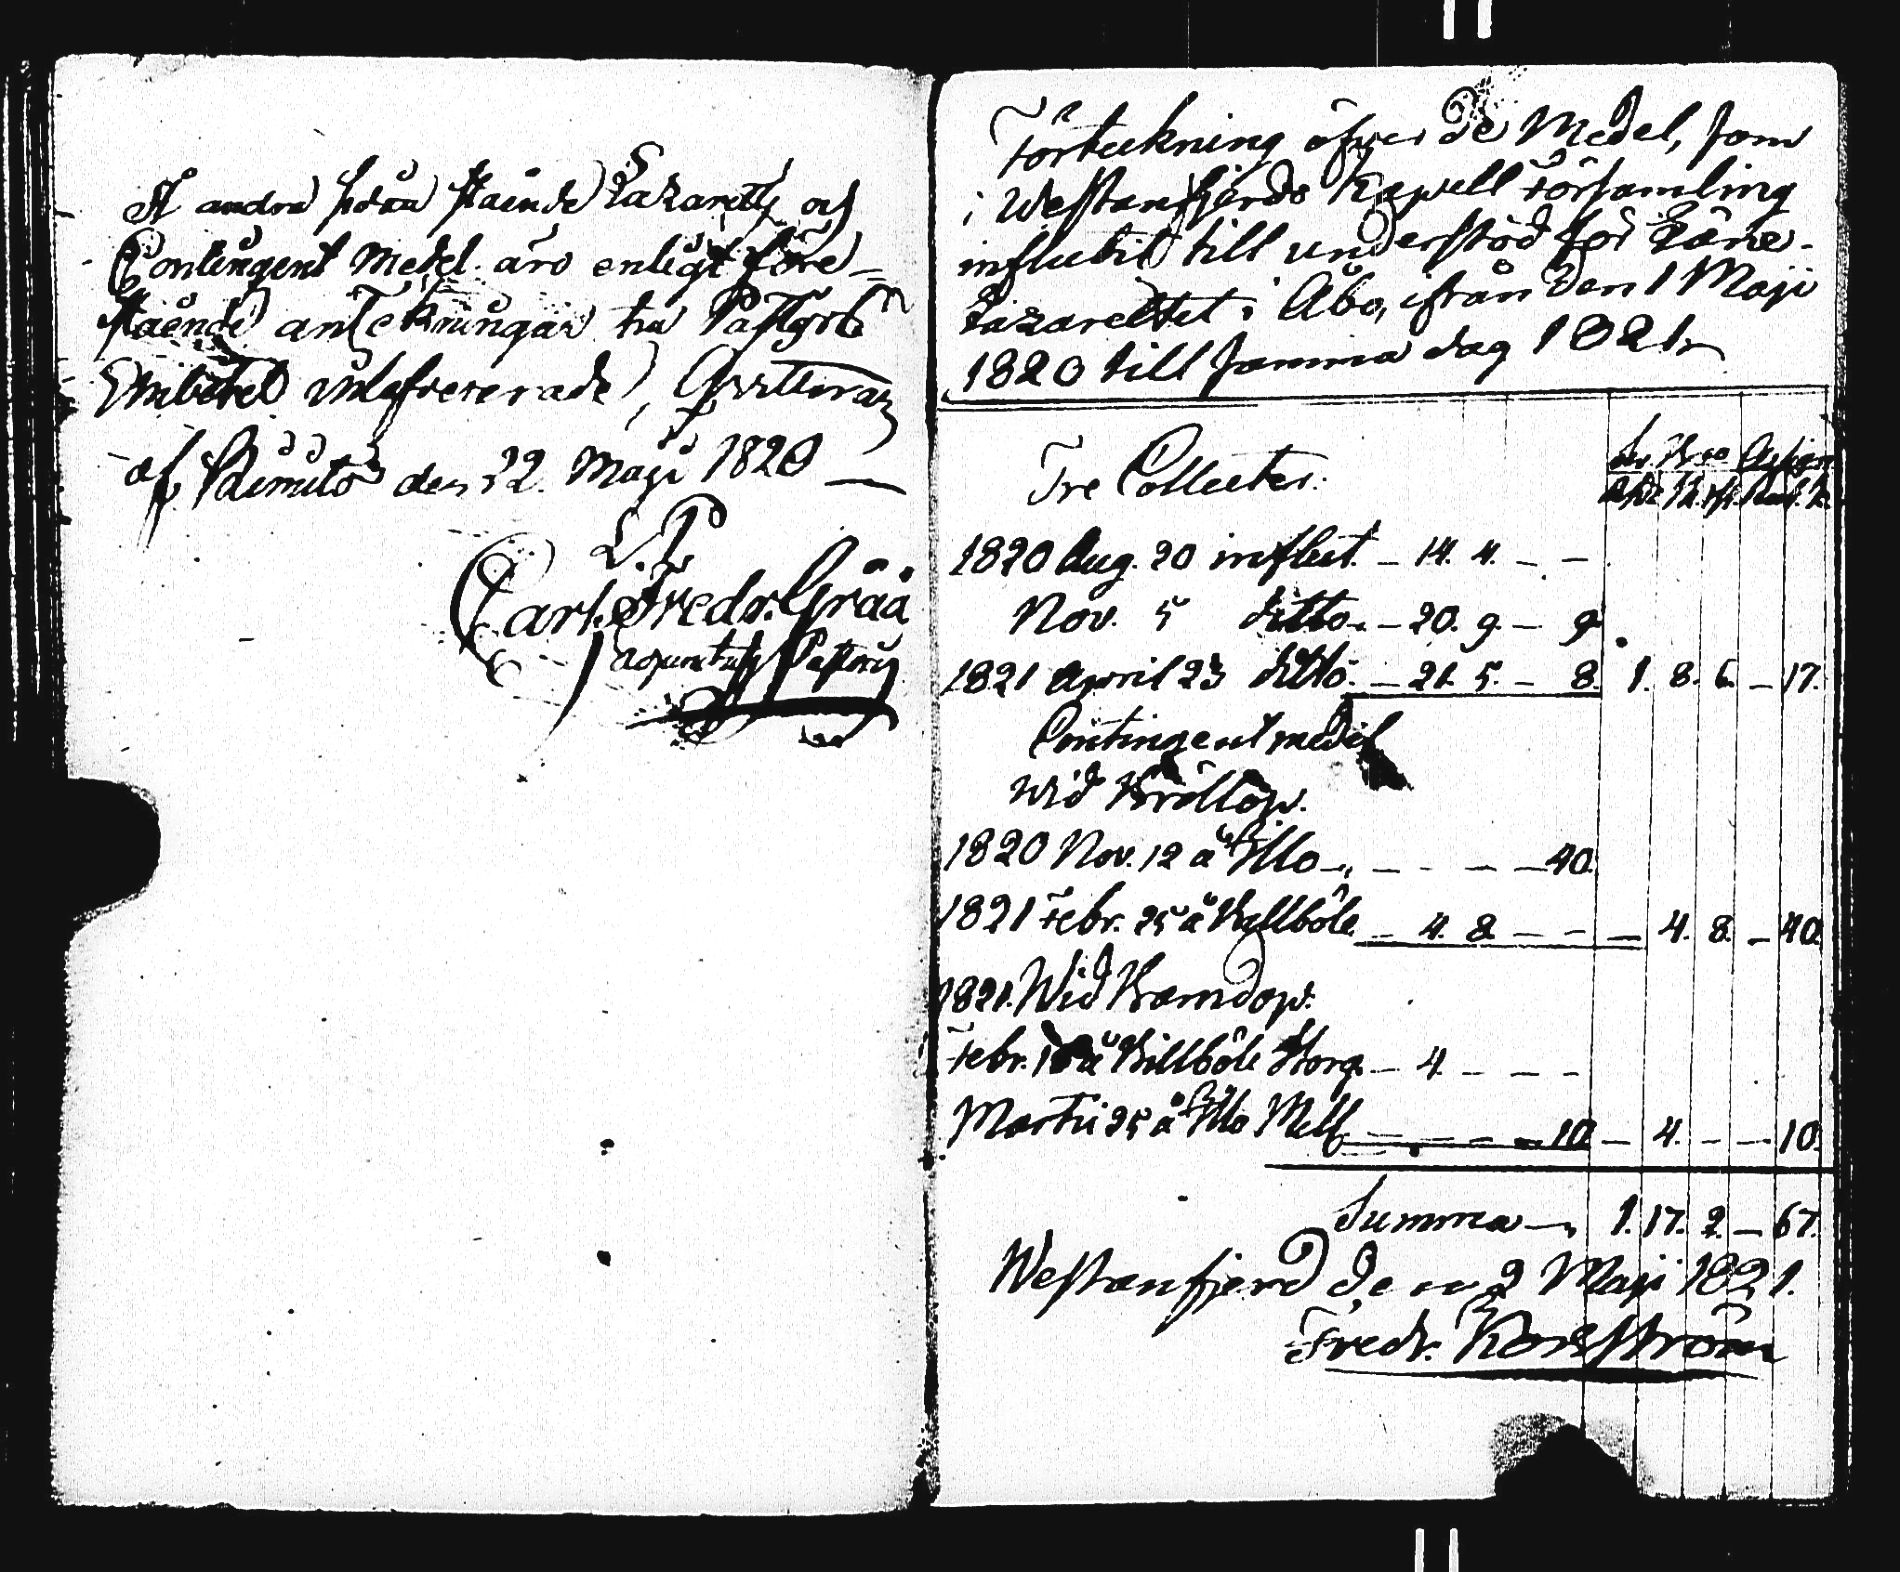 Å andra sidan stående Lazaretts och
Contingent Medel äro enligt före-
stående anteckningar tra Pastors
Embetet inlefvererade, Qvitteras
af Kimito den 22. Maji 1820
Carl Fredr. Gråå
adjunctus Pastoris
Förteckning öfver De Medel, som
i Westanfjerds Kapell Församling
influtit till understöd för Läne-
Lazarettet i Åbo, ifrån Den 1 Maji
1820 till samma dag 1821.
Tre Collecter.
1820 Aug. 20 influt. – 14. 4. – –
Nov. 5 ditto. – 20. 9. – 9.
1821 April 23 ditto. – 21. 5. – 8. 1. 8. 6. – 17.
Contingent medel
wid Bröllop.
1820 Nov. 12 å Illo – – – – 40.
1821 Febr. 25 å Kallböle – 4. 8. – – – 4. 8. – 40.
1821. Wid Barndop.
Febr. å Billböle Storg. – 4. – – –
Martii 25 å Illo Mell – – – – 10. – 4. – – 10.
Summa – 1. 17. 2. – 67.
Westanfjerd Den 2 Maji 1821.
Fredr. Korsström